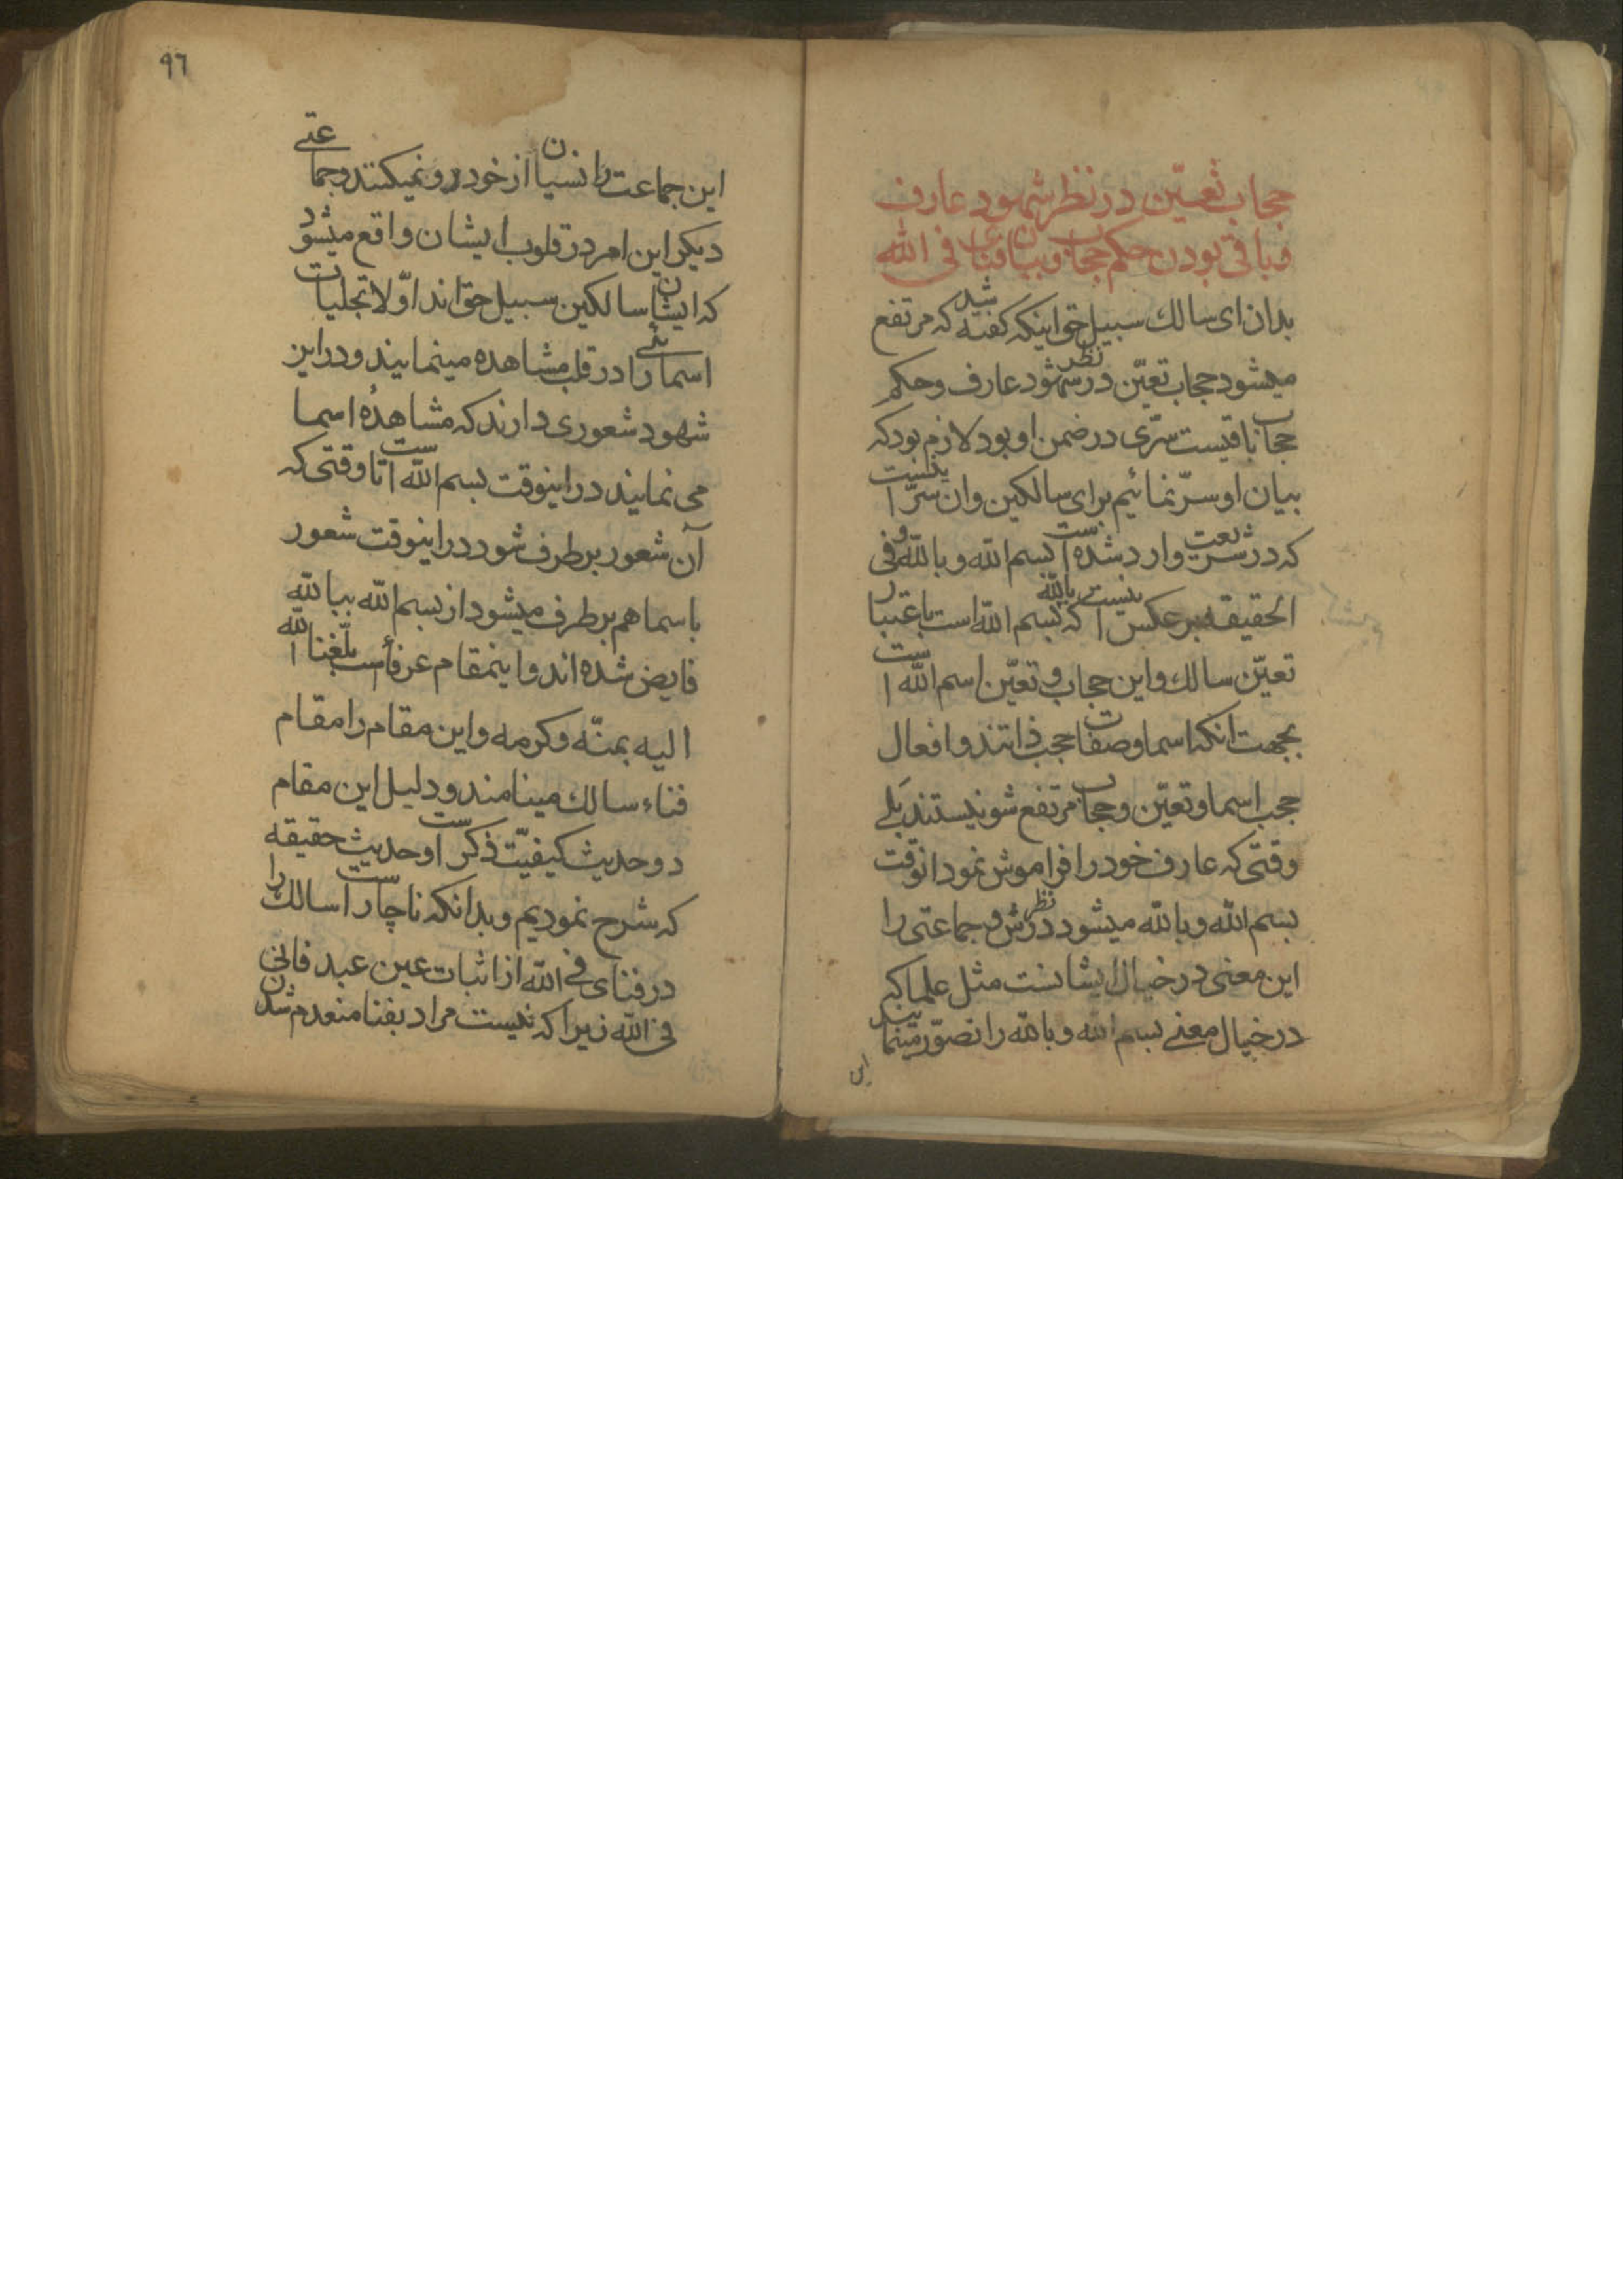 حجاب تعیّن در نظر شهود عارف
و باقی بودن حکم حجاب و بیان فنای فی الله
بدان ای سالک سبیل حق اینکه گفته شد که مرتفع
میشود حجاب تعیّن در نظر شهود عارف و حکم
حجاب باقیست سرّی در ضمن او بود لازم بود که
بیان او سرّ نمائیم برای سالکین و ان سرّ اینست
که در شریعت وارد شده است بسم الله و بالله و فی
الحقیقه بر عکس است بالله که بسم الله است باعتبار
تعیّن سالک و این حجاب و تعیّن اسم الله است
بجهت انکه اسما و صفات حجب ذاتند و افعال
حجب اسما و تعیّن و حجاب مرتفع شو نیستند بلے
وقتی که عارف خود را فراموش نمود انوقت
بسم الله و بالله میشود در نظرش و جماعتی را
این معنی در خیال ایشانست مثل علما که
در خیال معنے بسم الله و بالله را تصوّر مینمایند
این
۹٦
این جماعت را نسیان از خود رو نمیکند و جماعتے
دیگر این امر در قلوب ایشان واقع میشود
که ایشان سالکین سبیل حق اند اوّلا تجلیات
اسمائے را در قلب مشاهده مینمایند و در این
شهود شعوری دارند که مشاهدهٔ اسما
می نمایند در اینوقت بسم الله است تا وقتی که
آن شعور بر طرف شود در اینوقت شعور
باسما هم بر طرف میشود از بسم الله ببالله
فایض شده اند و اینمقام عرفأست بلّغنا الله
الیه بمنّه و کرمه و این مقام را مقام
فناء سالک مینامند و دلیل این مقام
دو حدیث کیفیّت ذکر است و حدیث حقیقه
که شرح نمودیم و بدانکه ناچار است سالک را
در فنای فی الله از اثبات عین عبد فانی
فی الله زیرا که نیست مراد بفنا منعدم شدن